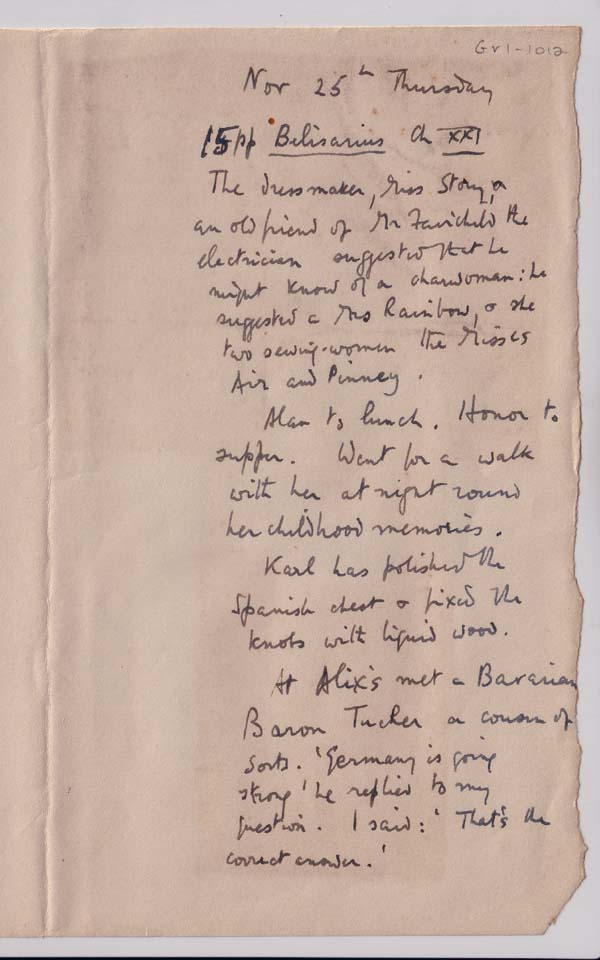 Gv1-1012
Nov 25th Thursday
15pp Belisarius Ch XXI
The dressmaker, Miss Story, &
an old friend of Mr Fairchild the
electrician suggested that he
might know of a charwoman: he
suggested a Mrs Rainbow, & she
two sewing-women the Misses
Air and Pinney.
Alan to lunch. Honor to
supper. Went for a walk
with her at night round
her childhood memories.
Karl has polished the
Spanish chest & fixed the
knobs with liquid wood.
At Alix's met a Bavarian
Baron Tucher a cousin of
sorts. 'Germany is going
strong' he replied to my
question. I said: 'That's the
correct answer.'